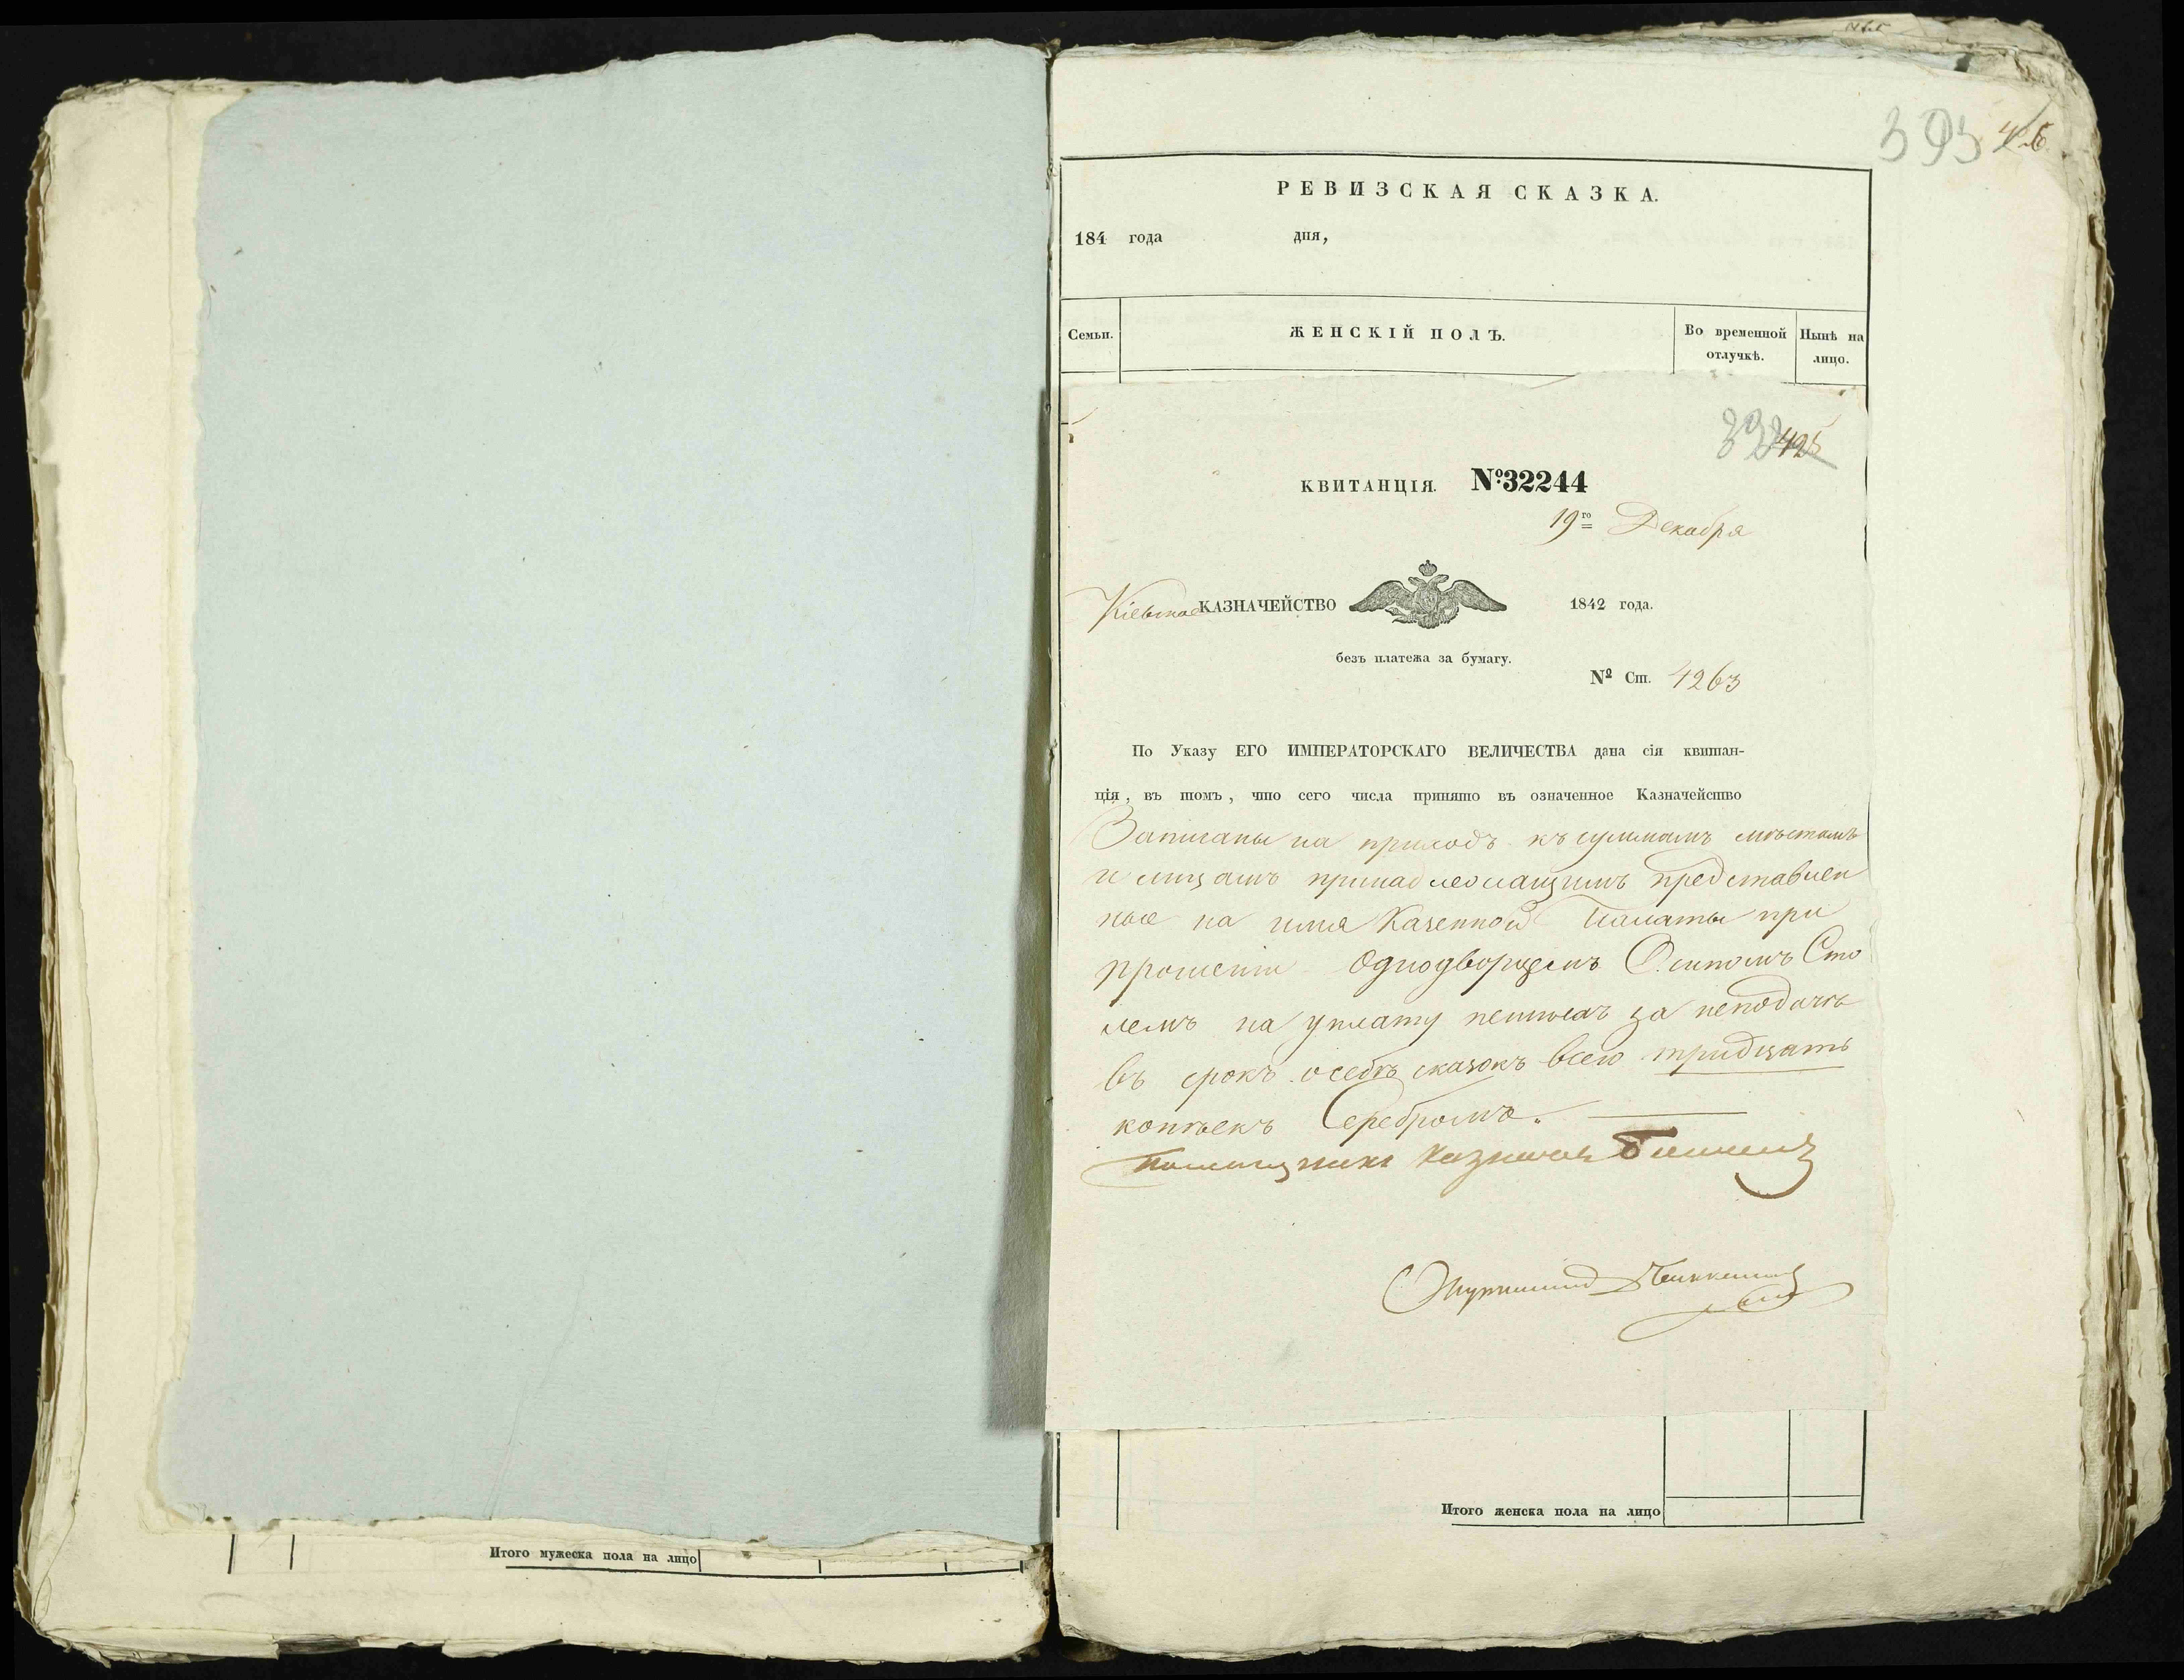 393 426
РЕВИЗСКАЯ СКАЗКА.
184 года дня,
Семьи. ЖЕНСКІЙ ПОЛЪ. Во временной отлучкѣ. Нынѣ на лицо.
425
КВИТАНЦІЯ. №32244
19го Декабря
Кіевское КАЗНАЧЕЙСТВО 1842 года.
безъ платежа за бумагу.
№ Ст. 4263
По Указу ЕГО ИМПЕРАТОРСКАГО ВЕЛИЧЕСТВА дана сія квитан-
ція, въ томъ, что сего числа принято въ означенное Казначейство
Записаны на приходъ къ суммамъ мѣстамъ
и лицамъ принадлежащимъ представлен
ные на имя Казенной Палаты при
прошеніи Однодворцемъ Осипомъ Сто
лемъ на уплату пени за неподачу
въ срокъ о себѣ сказокъ всего тридцать
копѣекъ Серебромъ.
Помощникъ Казначея
Итого женска пола на лицо
Итого мужеска пола на лицо